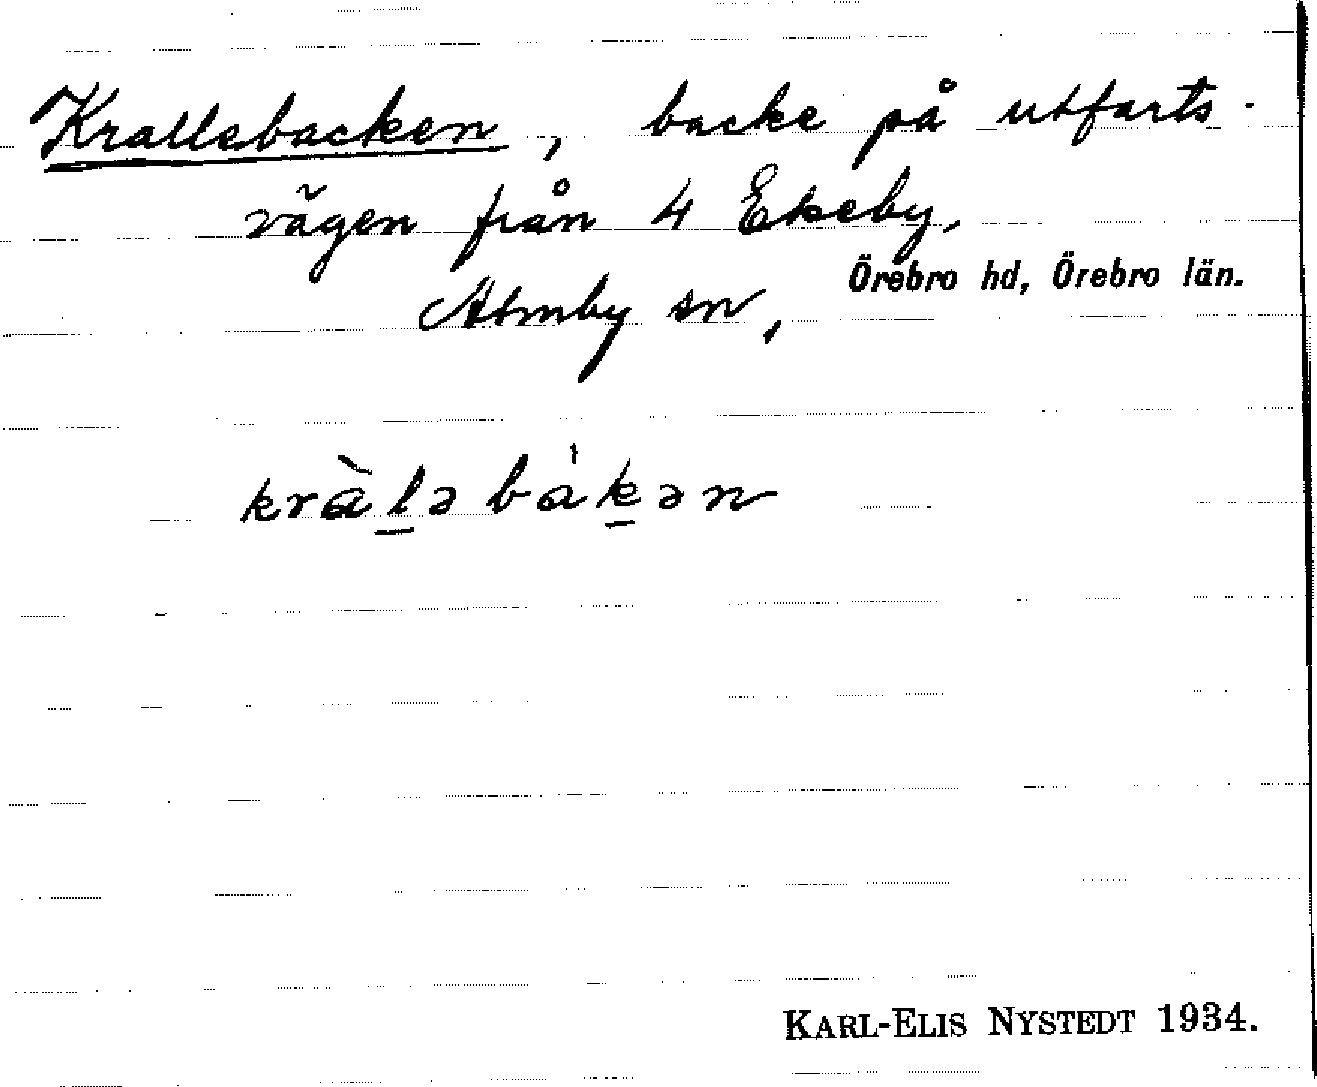 Krallebacken, backe på utfarts-
vägen från 4 Ekeby,
Almby sn, Örebro hd, Örebro län.
kràlə bákən
KARL-ELIS NYSTEDT 1934.